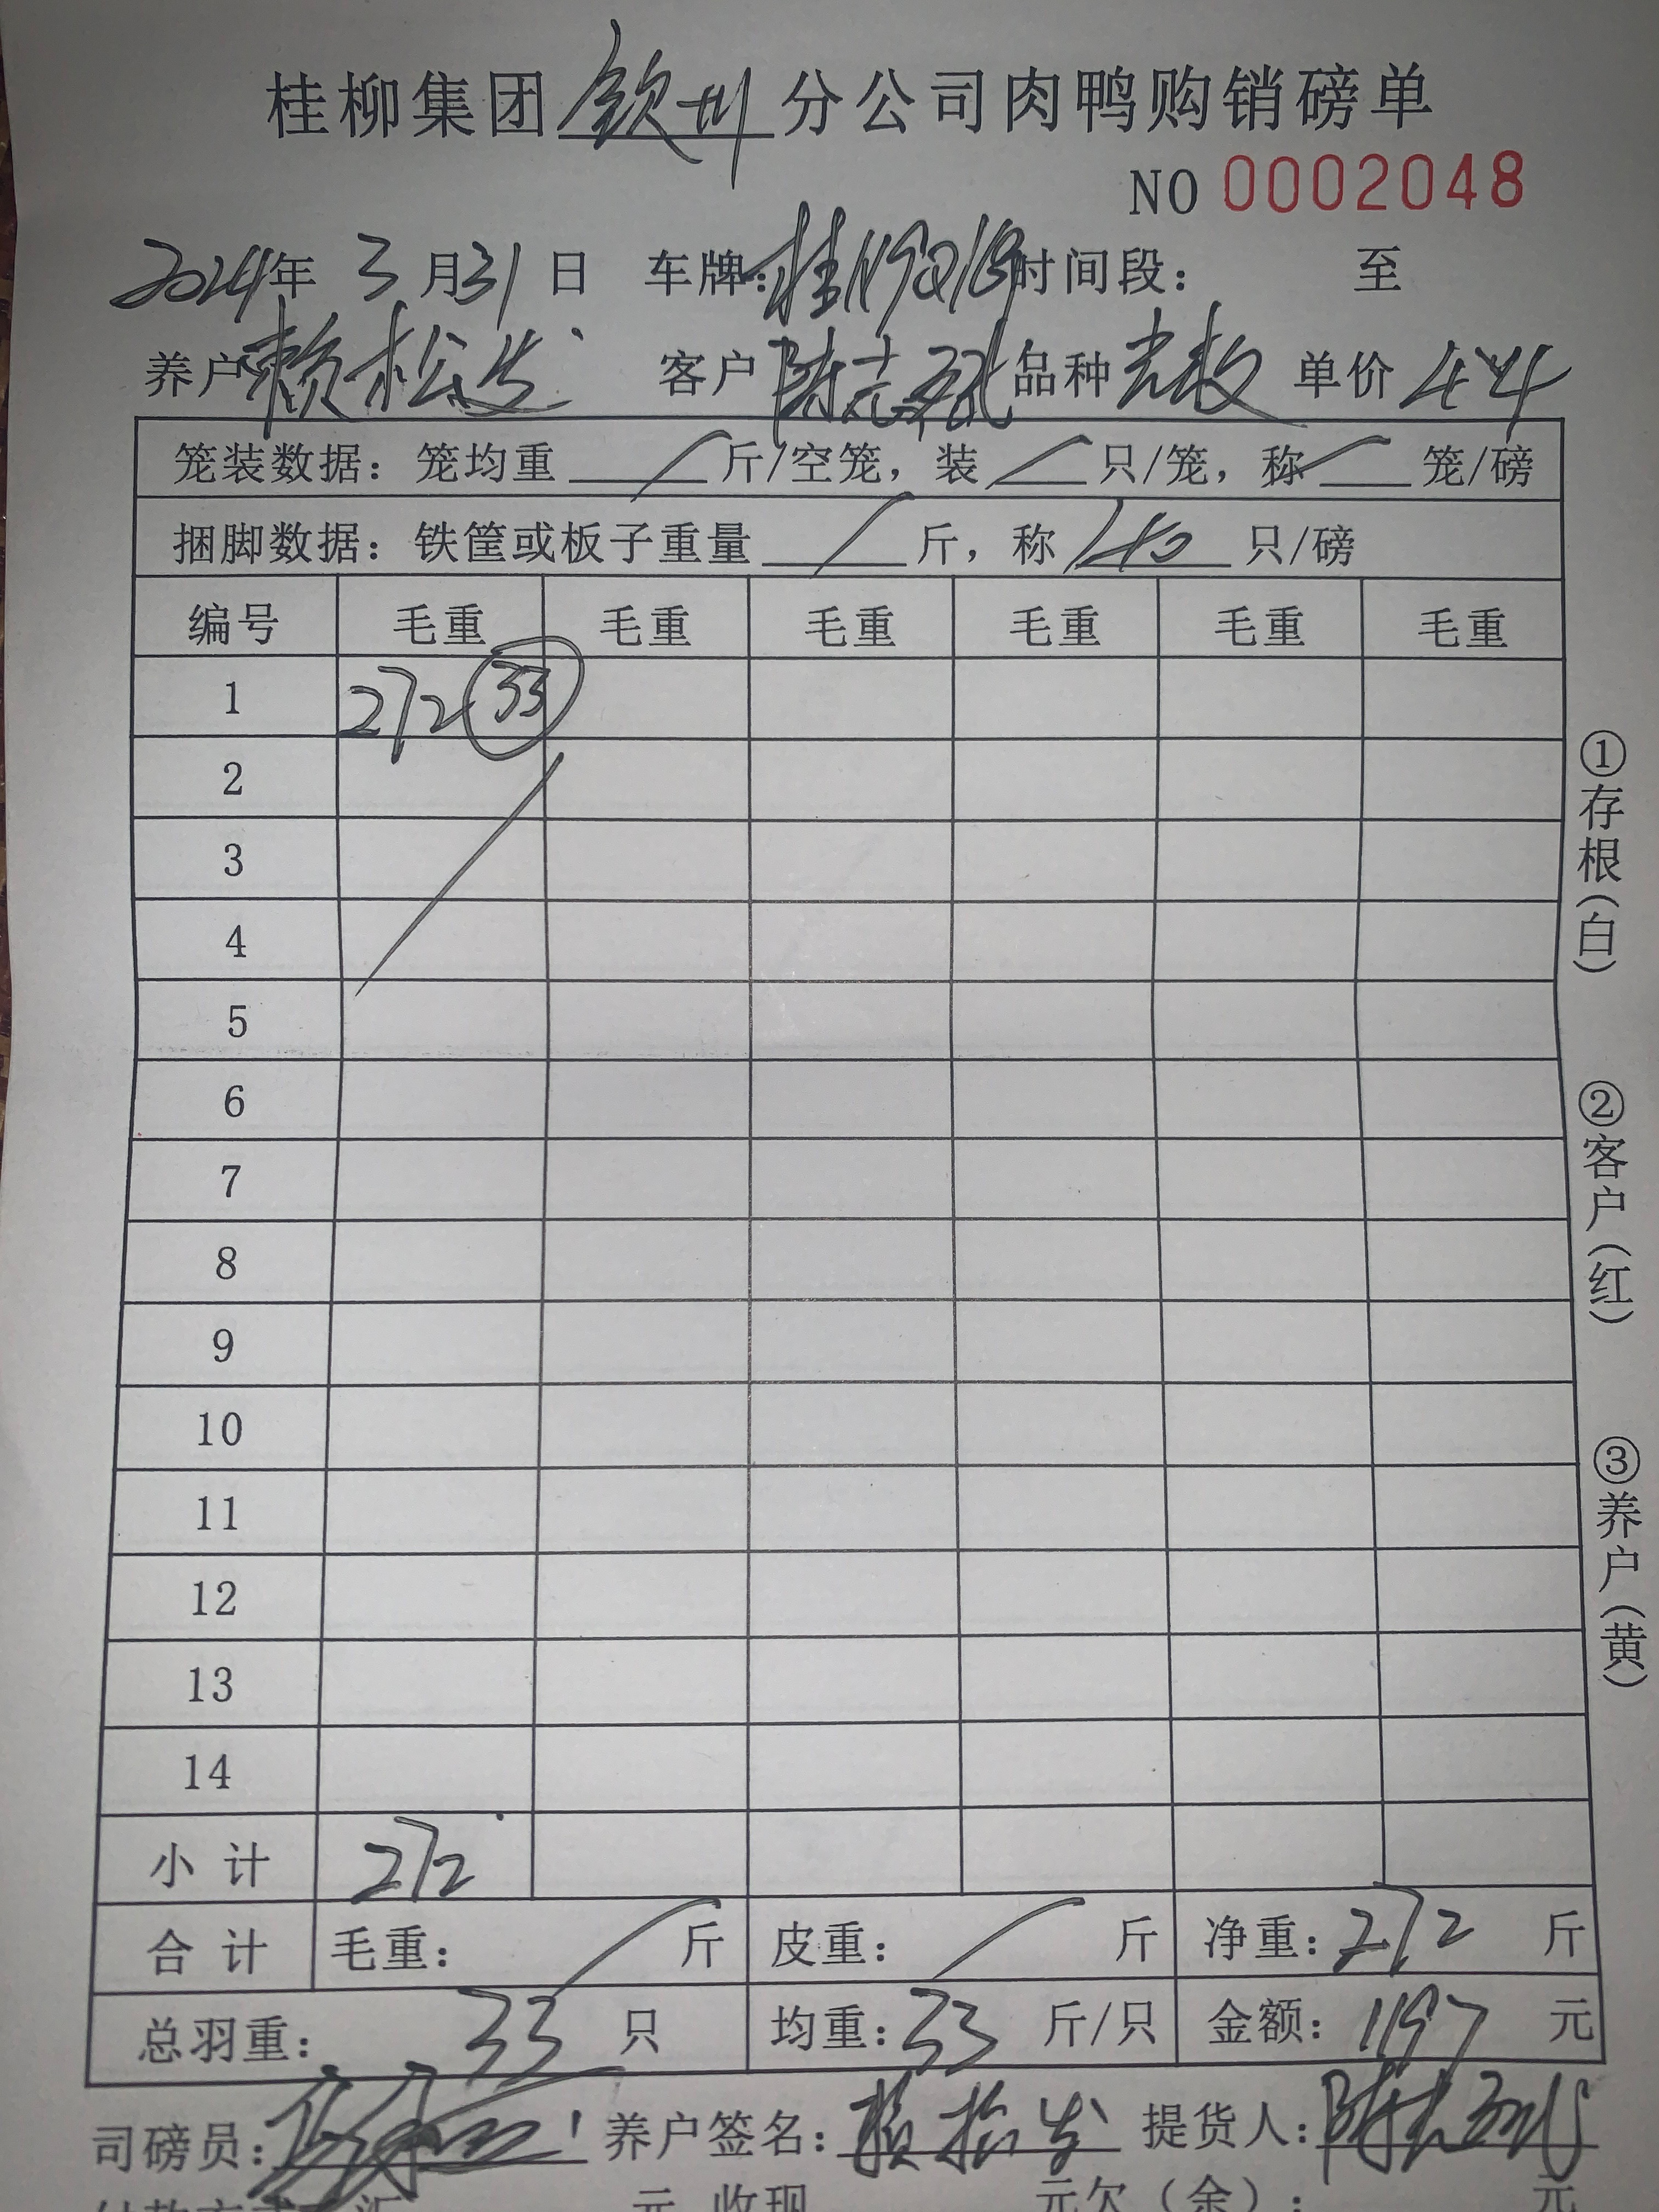 桂柳集团钦州分公司肉鸭购销磅单
NO 0002048
2024年 3 月31 日 车牌: 时间段: 至
养户赖松发 客户陈志 品种 单价 4.4
笼装数据: 笼均重 斤/空笼, 装 只/笼, 称 笼/磅
捆脚数据: 铁筐或板子重量 斤, 称 只/磅
编号 毛重 毛重 毛重 毛重 毛重 毛重
1 272 33
2
3
4
5
6
7
8
9
10
11
12
13
14
小 计 272
合 计 毛重: 斤 皮重: 斤 净重: 272 斤
总羽重: 33 只 均重: 33 斤/只 金额: 1197 元
司磅员: 养户签名: 赖松发 提货人: 陈志
元 收现 元欠(余): 元
①存根(白)
②客户(红)
③养户(黄)